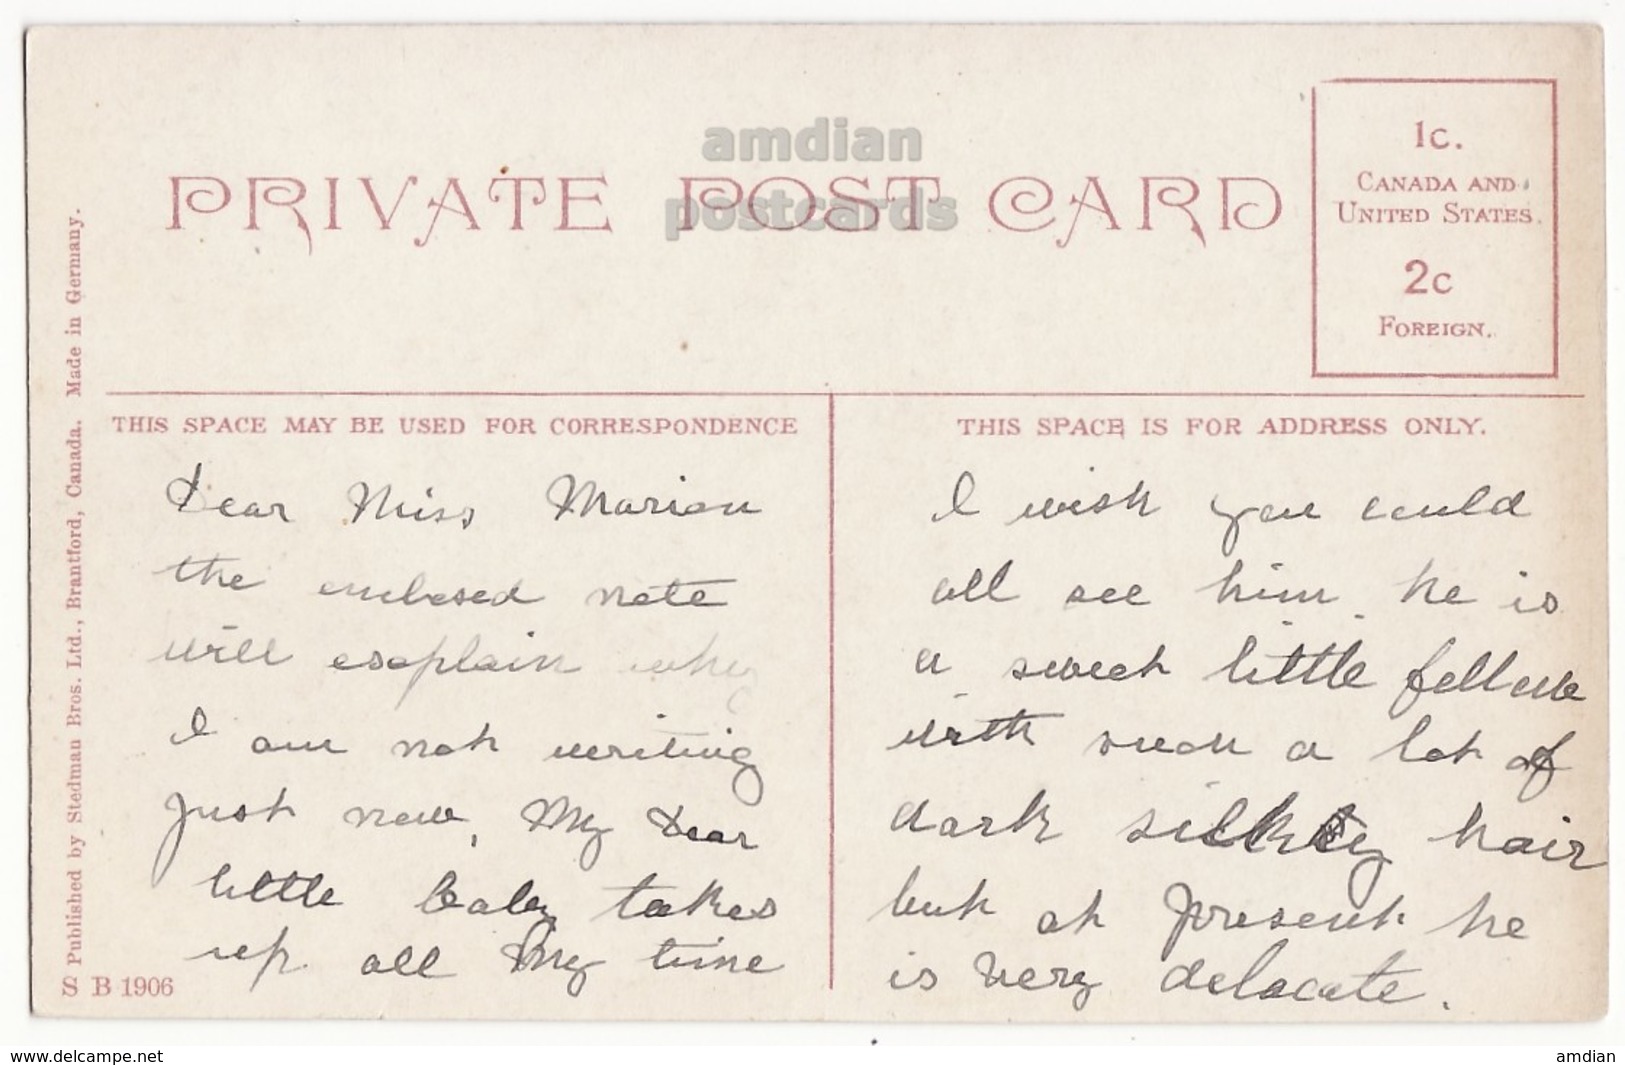 amdian
postcards
PRIVATE POST CARD
1c.
CANADA AND
UNITED STATES.
2c
FOREIGN.
Published by Stedman Bros. Ltd., Brantford, Canada. Made in Germany.
S B 1906
THIS SPACE MAY BE USED FOR CORRESPONDENCE
Dear Miss Marion
the enclosed note
will esoplain why
I am not writing
just now, My Dear
little baby takes
up all My time
THIS SPACE IS FOR ADDRESS ONLY.
I wish you could
all see him. he is
a sweet little fellow
with such a lot of
dark silky hair
but at present he
is very delacate.
www.delcampe.net
amdian